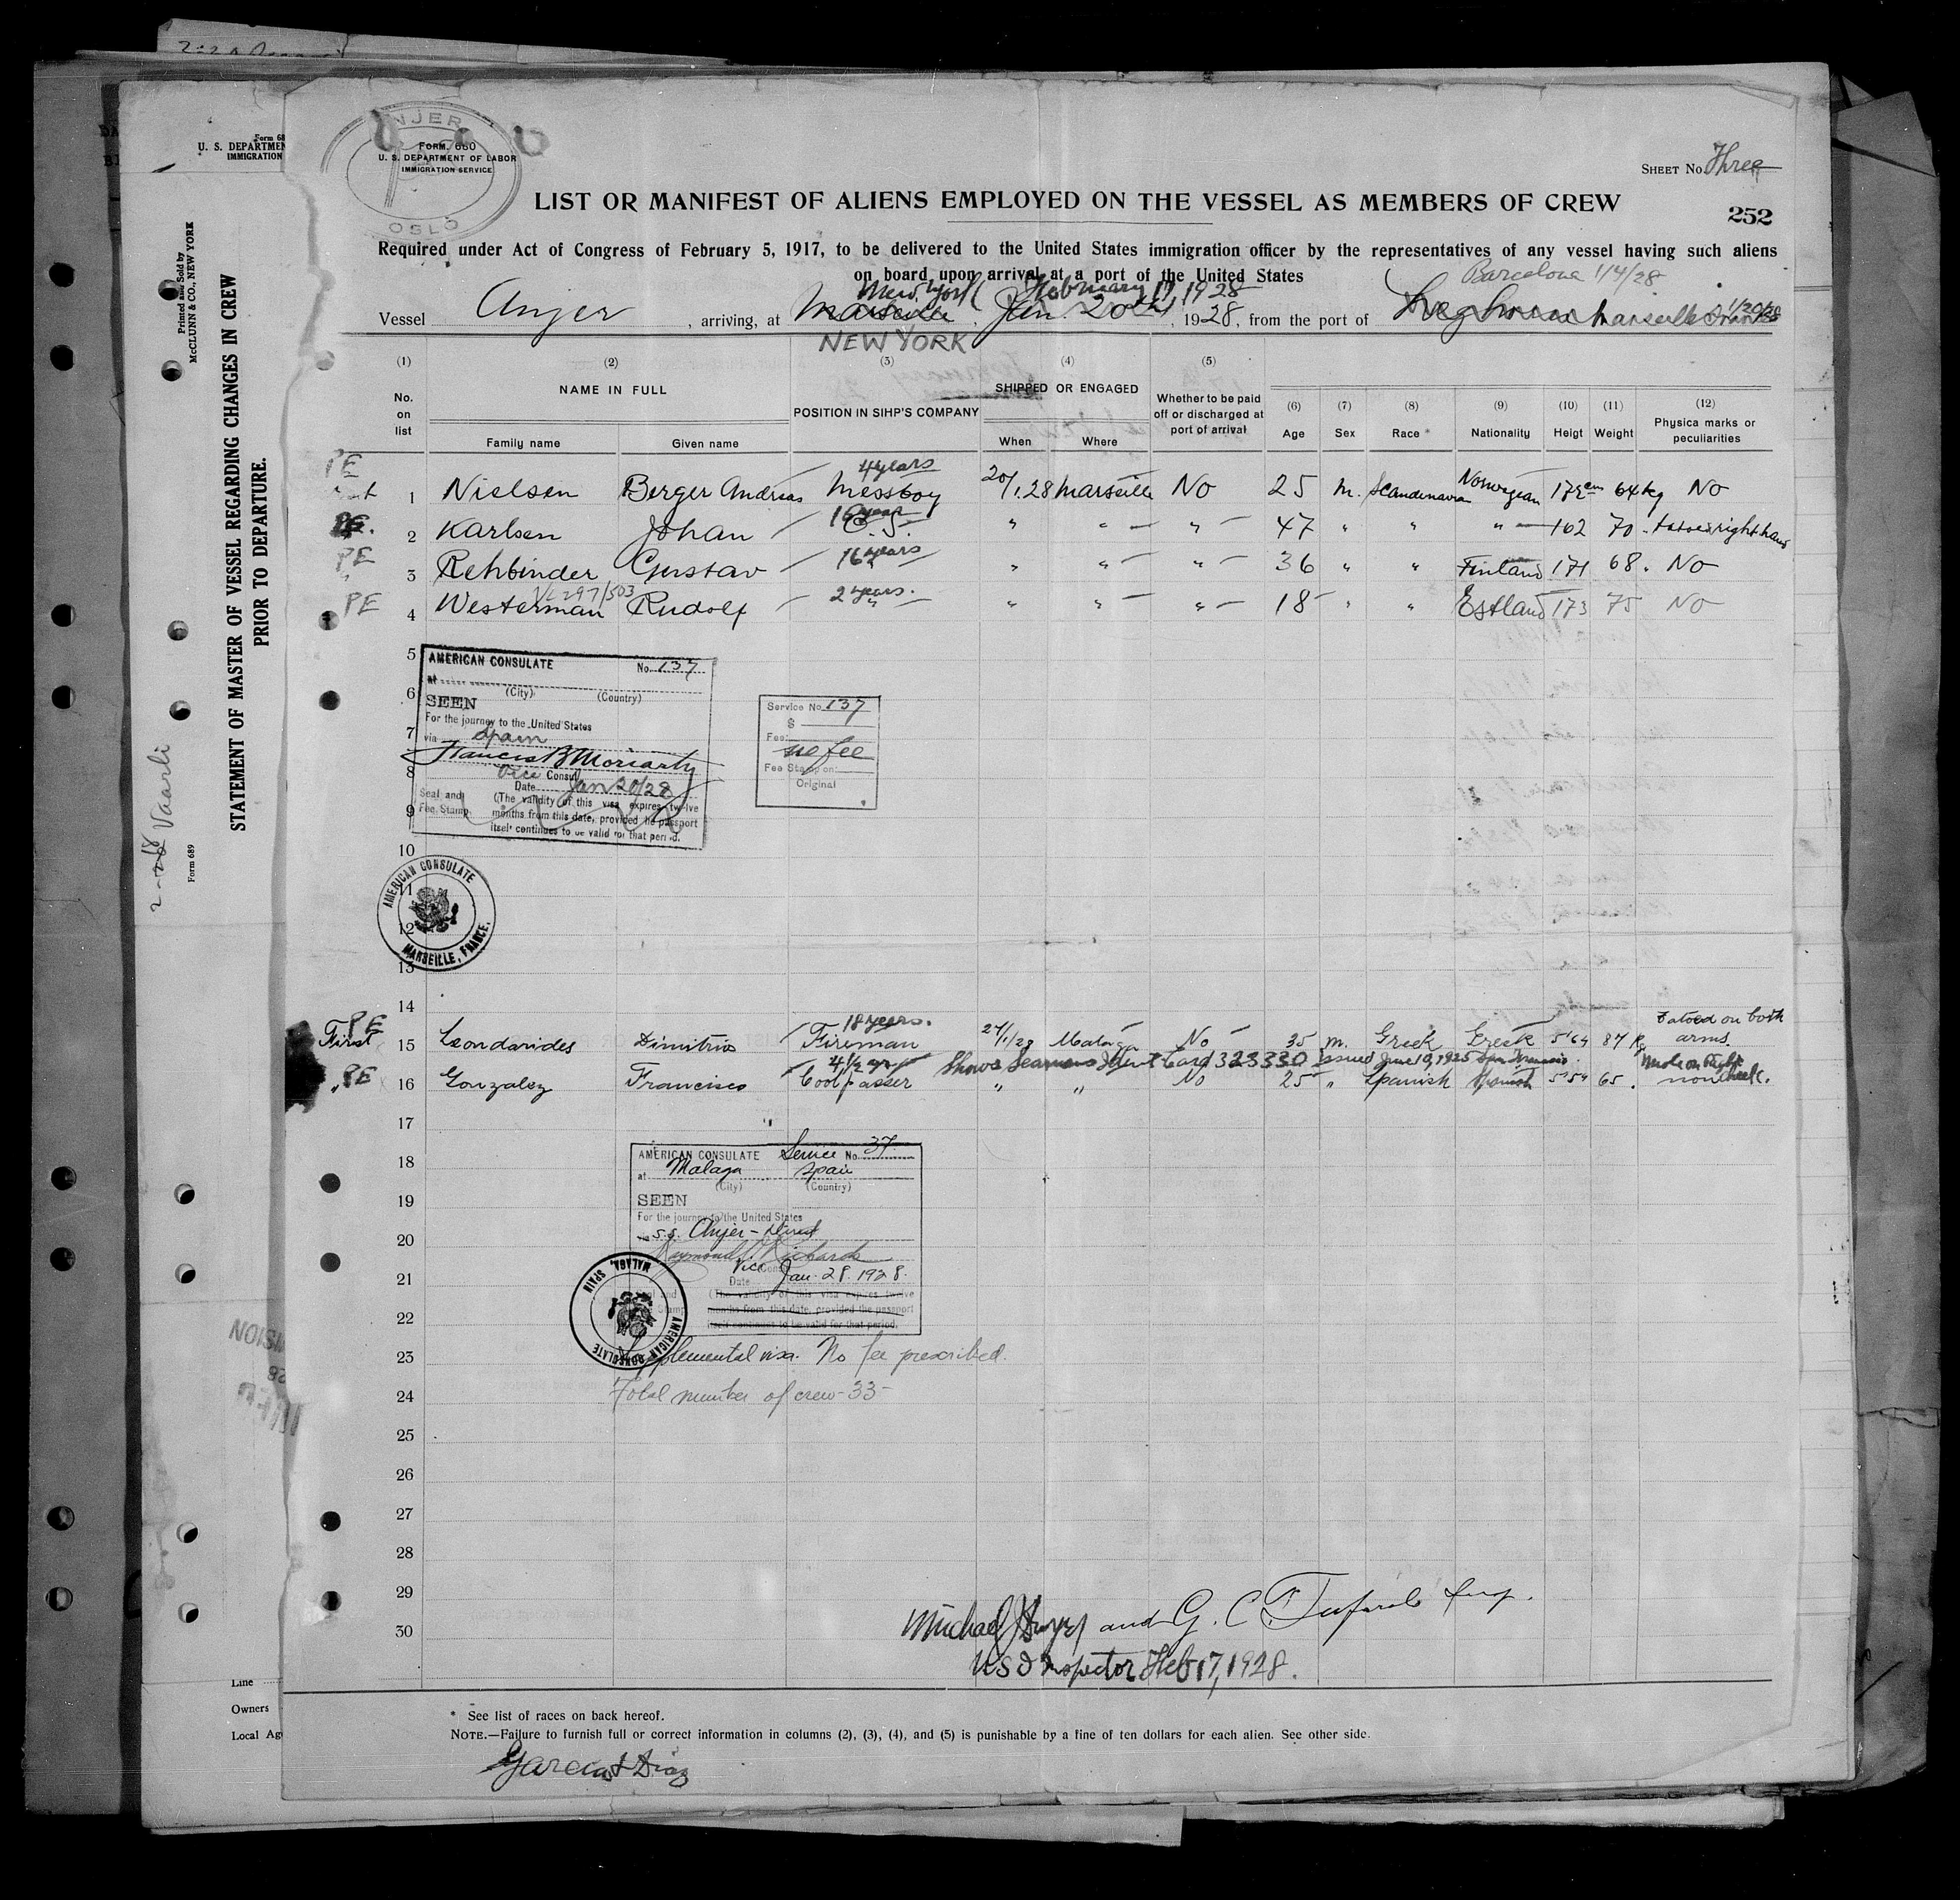 ANJER
OSLO
FORM 680
U. S. DEPARTMENT OF LABOR
IMMIGRATION SERVICE
SHEET No. Three
LIST OR MANIFEST OF ALIENS EMPLOYED ON THE VESSEL AS MEMBERS OF CREW
252
Required under Act of Congress of February 5, 1917, to be delivered to the United States immigration officer by the representatives of any vessel having such aliens
on board upon arrival at a port of the United States
Barcelona 1/4/28
New York February 17 1928
Vessel Anjer, arriving, at Marseille, Jan 20th, 1928, from the port of Leghorn Marseille France 1/20/28
NEW YORK
(1) (2) (3) (4) (5)
No. on list
NAME IN FULL
POSITION IN SIHP'S COMPANY
SHIPPED OR ENGAGED
Whether to be paid off or discharged at port of arrival
(6) (7) (8) (9) (10) (11) (12)
Age Sex Race * Nationality Heigt Weight Physica marks or peculiarities
Family name Given name When Where
4 years
PE 1 Nielsen Berger Andreas Messboy 20/1.28 Marseille No 25 m. Scandinavian Norwegian 172 cm 64 kg No
PE. 2 Karlsen Johan 47 " " " 162 70 right hand
PE 3 Rehbinder Gustav 16 years " " " 36 " " Finland 171 68 No
VL 297/503
PE 4 Westerman Rudolf 2 years. " " " 18 " " Estland 173 75 No
5
6
7
8
9
10
11
12
13
14
AMERICAN CONSULATE No. 137
at
(City) (Country)
SEEN
For the journey to the United States
via Spain
Francis B Moriarty
Vice Consul
Date Jan 20/28
Seal and Fee Stamp
(The validity of this visa expires twelve
months from this date, provided the passport
itself continues to be valid for that period.
Service No. 137
$
Fee:
no fee
Fee Stamp on:
Original
AMERICAN CONSULATE
MARSEILLE, FRANCE.
18 years. tatoed on both
PE First 15 Leondarides Dimitrios Fireman 27/1/28 Malaga No 35 m. Greek Greek 5'64 87 Kg arms.
4 1/2 yr Shows Seamans Ident Card 323330 Issued June 10, 1925 San Francisco. Mole on right cheek.
" PE 16 Gonzalez Francisco Coolpasser " " No 25 " Spanish Spanish 5'54 65. none
17
18
19
20
21
22
23
24
25
26
27
28
29
30
AMERICAN CONSULATE Service No. 37
at Malaga Spain
(City) (Country)
SEEN
For the journey to the United States
via S.S. Anjer - direct
Raymond Richards
Vice Cons
Date Jan. 28. 1928.
(The validity of this visa expires twelve
months from this date, provided the passport
itself continues to be valid for that period.
AMERICAN CONSULATE
MALAGA, SPAIN
Supplemental visa. No fee prescribed.
Total number of crew-33-
Michael and G. C. Insp.
U S I Inspector Feb 17, 1928.
* See list of races on back hereof.
NOTE.—Failure to furnish full or correct information in columns (2), (3), (4), and (5) is punishable by a fine of ten dollars for each alien. See other side.
Garcia & Diaz
Form 68
U. S. DEPARTMEN
IMMIGRATION
Printed and Sold by
McCLUNN & CO., NEW YORK
STATEMENT OF MASTER OF VESSEL REGARDING CHANGES IN CREW
PRIOR TO DEPARTURE.
Form 689
Vaarli
Line
Owners
Local Ag